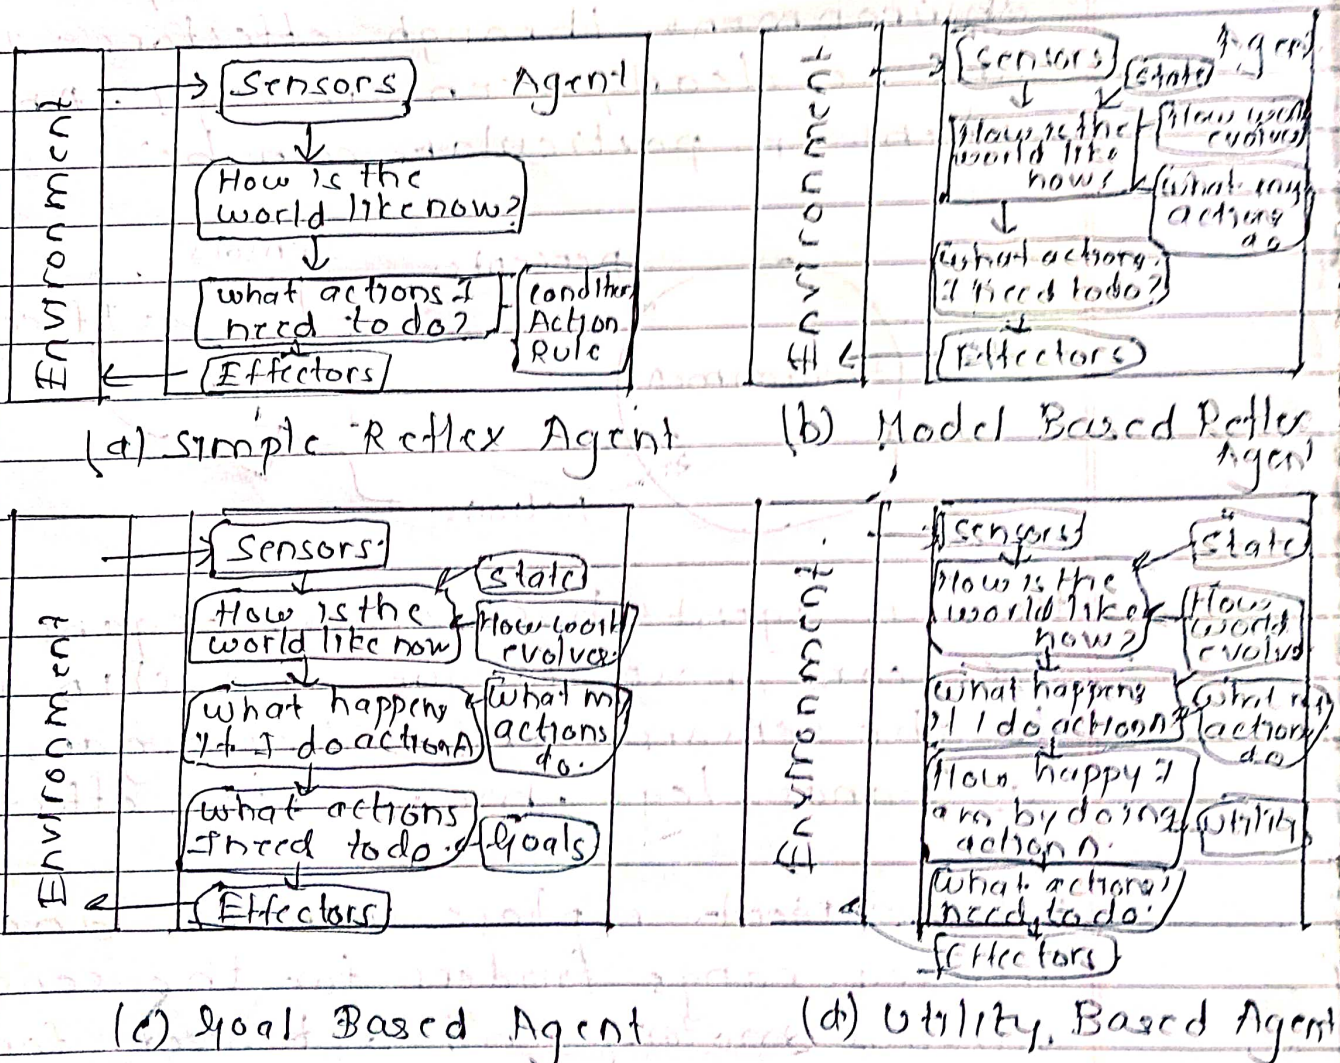 Environment
Sensors
Agent
How is the
world like now?
what actions I
need to do?
Condition
Action
Rule
Effectors
(a) Simple Reflex Agent
Environment
Sensors
State
Agent
How is the
world like
now?
How world
evolves
What my
actions
do
What actions
I need to do?
Effectors
(b) Model Based Reflex
Agent
Environment
Sensors.
State
How is the
world like now
How world
evolves.
What happens
if I do action A
What my
actions
do.
what actions
I need to do.
Goals
Effectors
(c) Goal Based Agent
Environment.
Sensors
State
How is the
world like
now?
How
world
evolve
What happens
if I do action A?
What my
action
do
How happy I
am by doing
action A.
Utility
What actions I
need to do.
Effectors
(d) Utility Based Agent